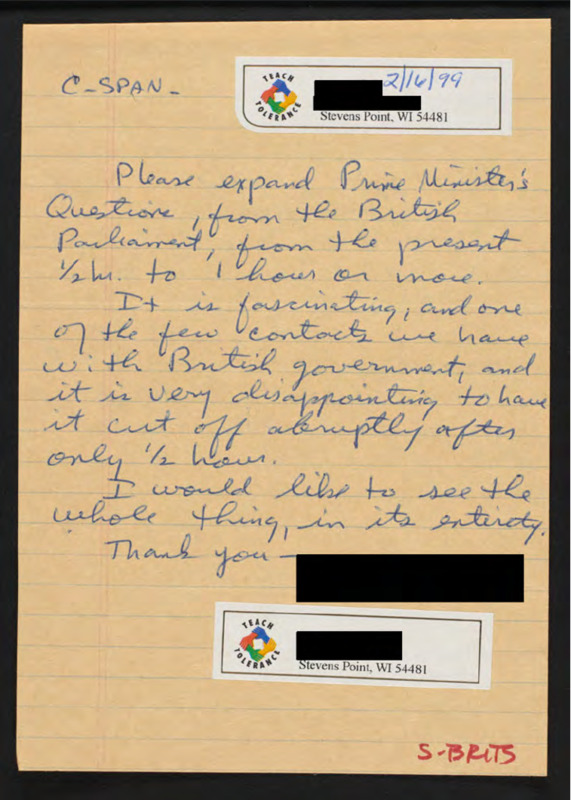 C-SPAN-
TEACH TOLERANCE
2/16/99
Stevens Point, WI 54481
Please expand Prime Minister's
Questions, from the British
Parliament, from the present
1/2 hr. to 1 hour or more.
It is fascinating, and one
of the few contacts we have
with British government, and
it is very disappointing to have
it cut off abruptly after
only 1/2 hour.
I would like to see the
whole thing, in its entirety.
Thank you -
TEACH TOLERANCE
Stevens Point, WI 54481
S-BRITS